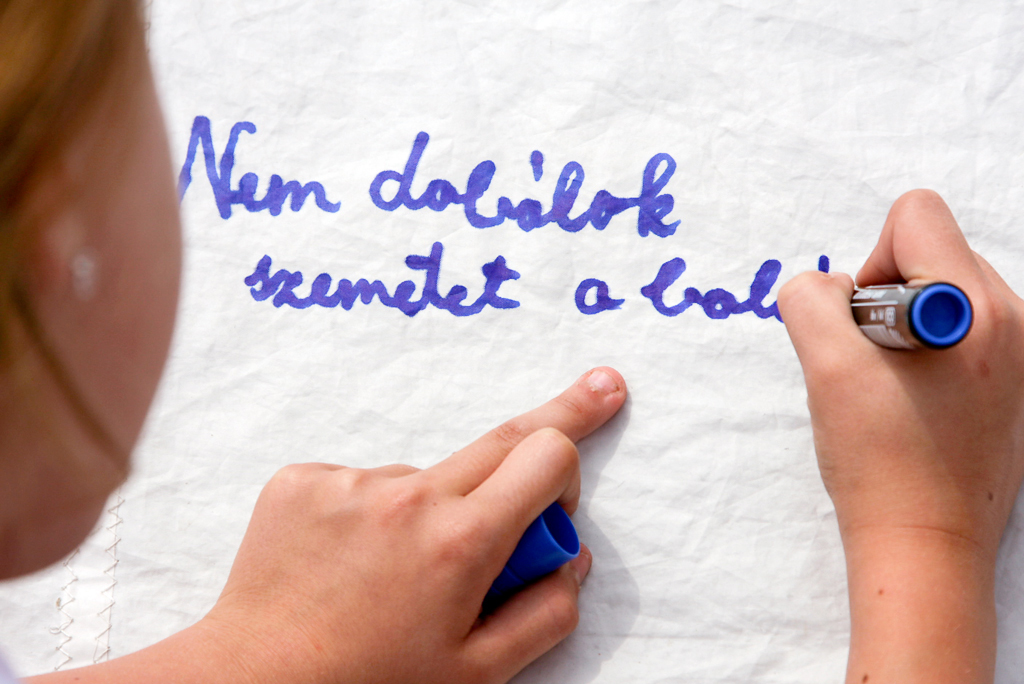 Nem dobálok
szemetet a